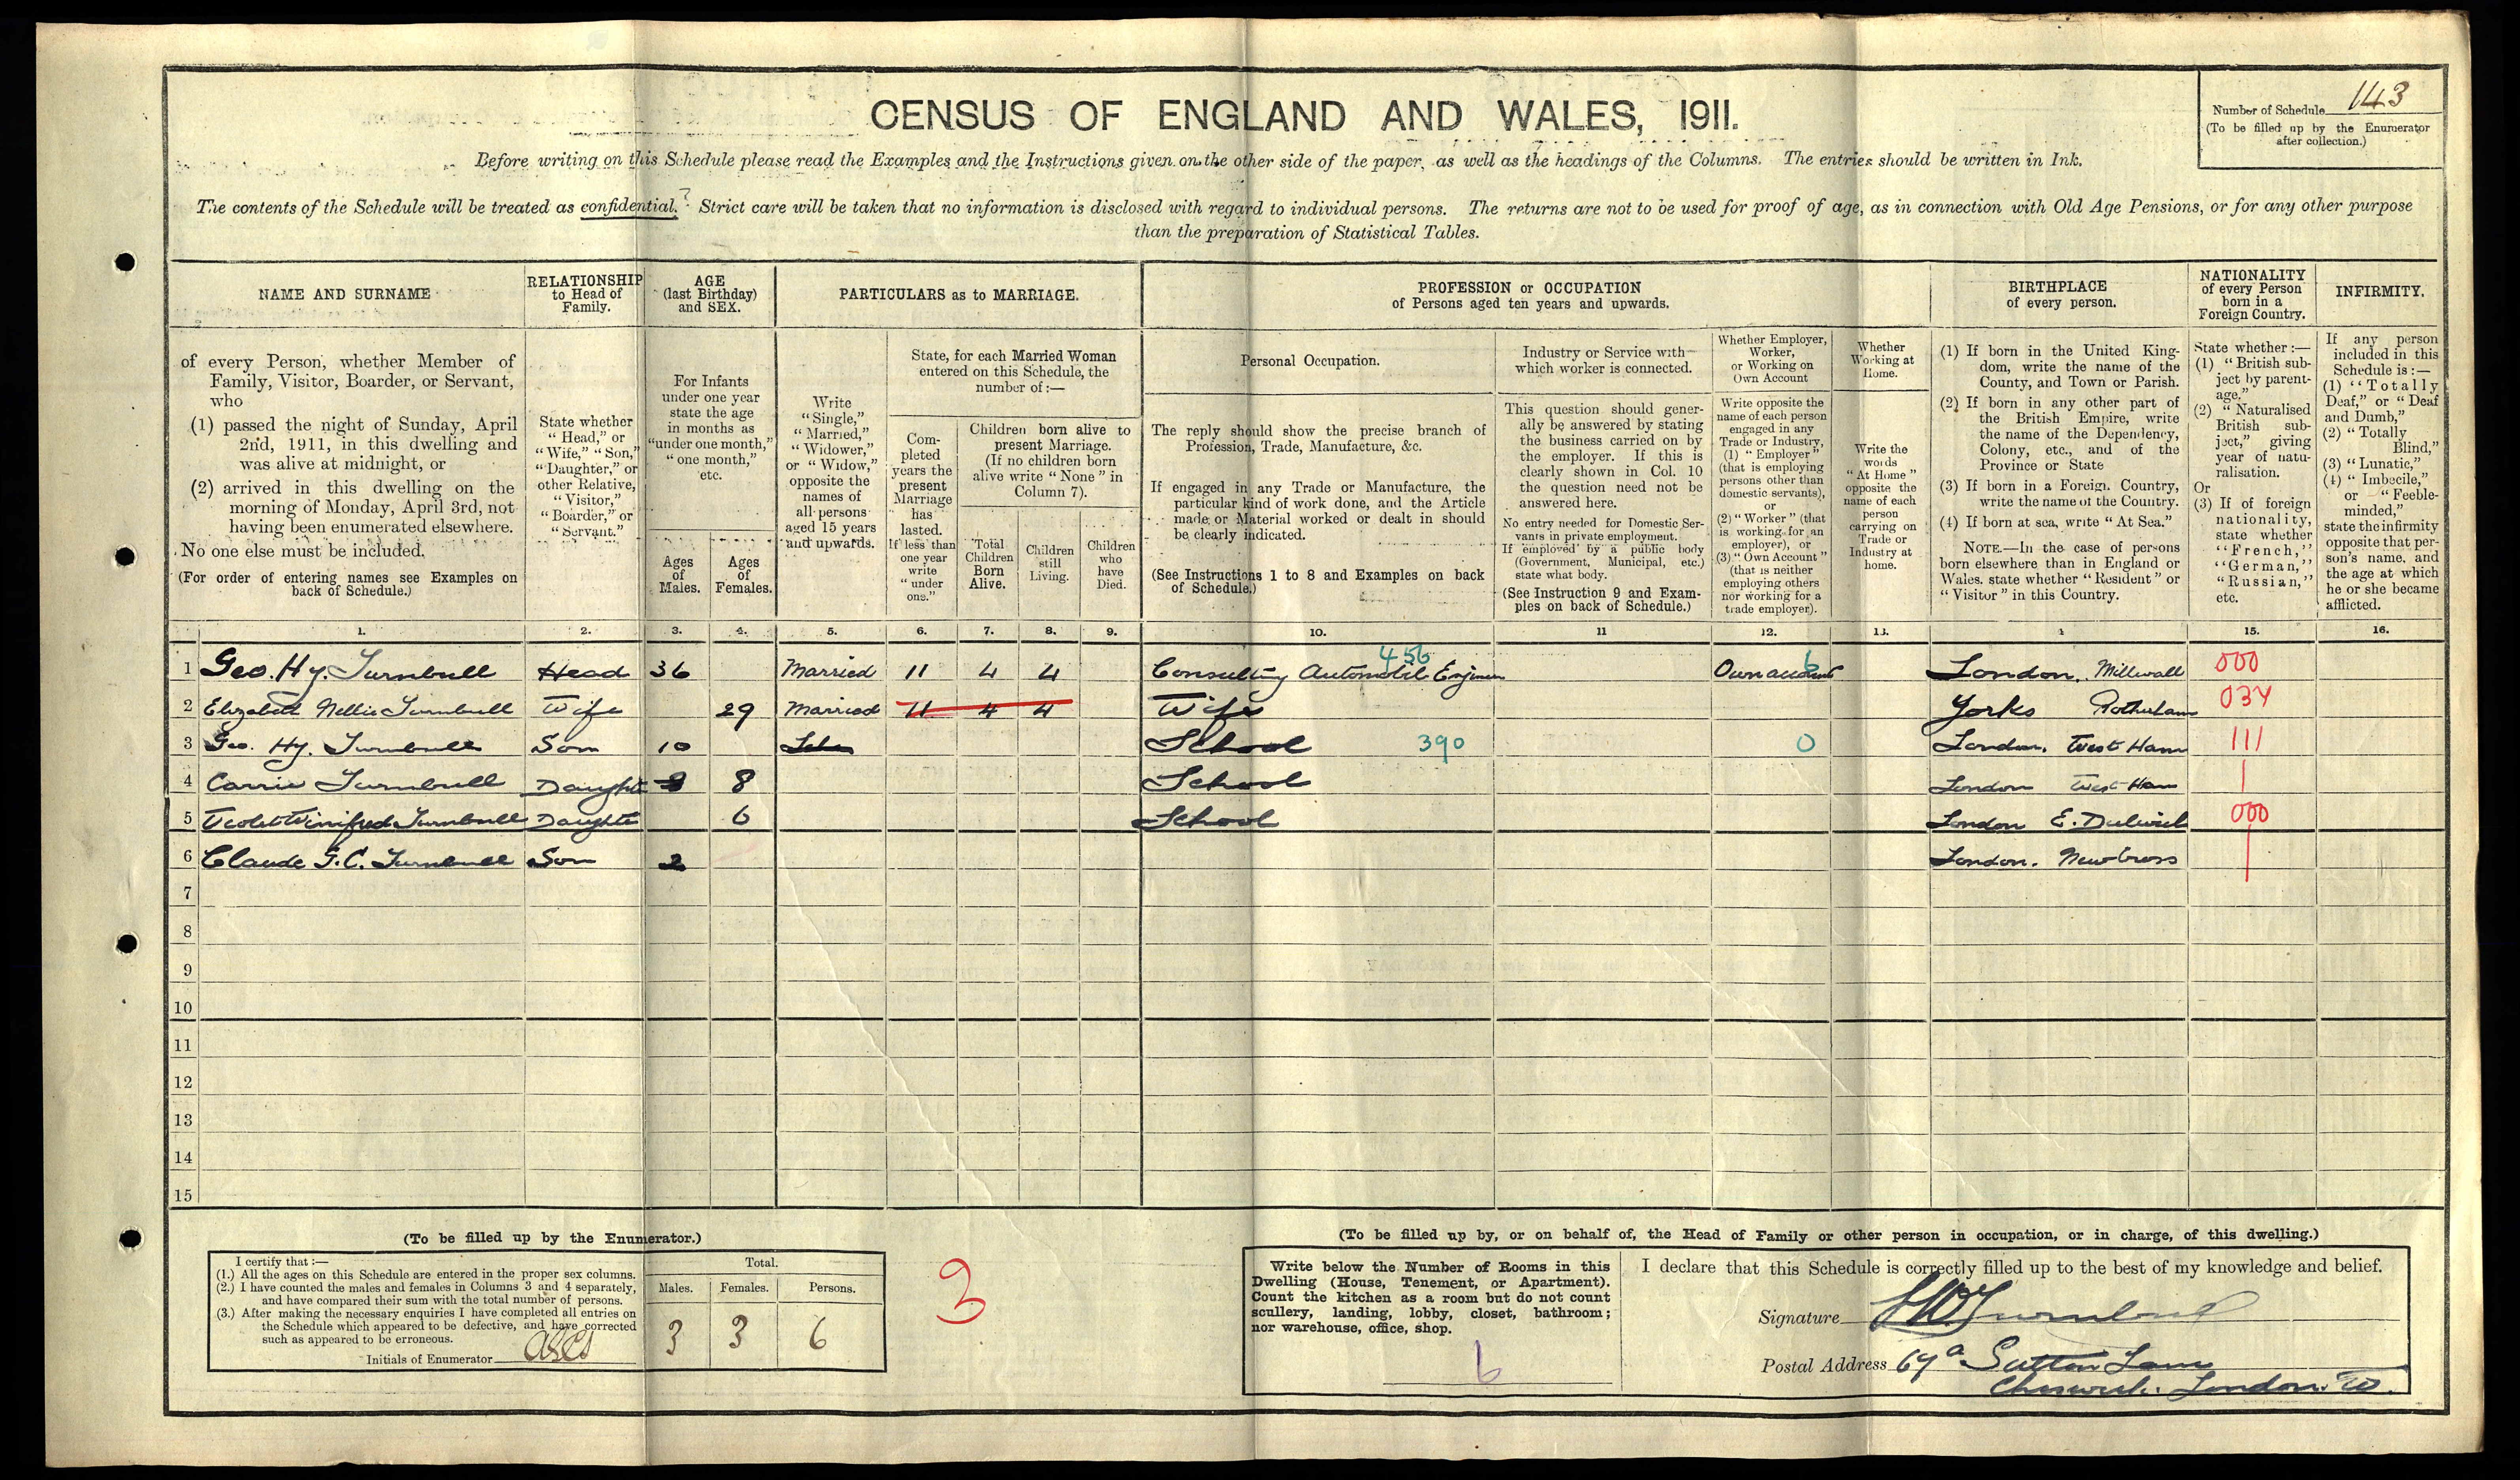 CENSUS OF ENGLAND AND WALES, 1911.
Number of Schedule 143
(To be filled up by the Enumerator
after collection.)
Before writing on this Schedule please read the Examples and the Instructions given on the other side of the paper, as well as the headings of the Columns. The entries should be written in Ink.
The contents of the Schedule will be treated as confidential. Strict care will be taken that no information is disclosed with regard to individual persons. The returns are not to be used for proof of age, as in connection with Old Age Pensions, or for any other purpose
than the preparation of Statistical Tables.
NAME AND SURNAME
of every Person, whether Member of
Family, Visitor, Boarder, or Servant,
who
(1) passed the night of Sunday, April
2nd, 1911, in this dwelling and
was alive at midnight, or
(2) arrived in this dwelling on the
morning of Monday, April 3rd, not
having been enumerated elsewhere.
No one else must be included.
(For order of entering names see Examples on
back of Schedule.)
RELATIONSHIP
to Head of
Family.
State whether
"Head," or
"Wife," "Son,"
"Daughter," or
other Relative,
"Visitor,"
"Boarder," or
"Servant."
AGE
(last Birthday)
and SEX.
For Infants
under one year
state the age
in months as
"under one month,"
"one month,"
etc.
Ages
of
Males.
Ages
of
Females.
PARTICULARS as to MARRIAGE.
Write
"Single,"
"Married,"
"Widower,"
or "Widow,"
opposite the
names of
all persons
aged 15 years
and upwards.
State, for each Married Woman
entered on this Schedule, the
number of:—
Com-
pleted
years the
present
Marriage
has
lasted.
If less than
one year
write
"under
one."
Children born alive to
present Marriage.
(If no children born
alive write "None" in
Column 7).
Total
Children
Born
Alive.
Children
still
Living.
Children
who
have
Died.
PROFESSION or OCCUPATION
of Persons aged ten years and upwards.
Personal Occupation.
The reply should show the precise branch of
Profession, Trade, Manufacture, &c.
If engaged in any Trade or Manufacture, the
particular kind of work done, and the Article
made or Material worked or dealt in should
be clearly indicated.
(See Instructions 1 to 8 and Examples on back
of Schedule.)
Industry or Service with
which worker is connected.
This question should gener-
ally be answered by stating
the business carried on by
the employer. If this is
clearly shown in Col. 10
the question need not be
answered here.
No entry needed for Domestic Ser-
vants in private employment.
If employed by a public body
(Government, Municipal, etc.)
state what body.
(See Instruction 9 and Exam-
ples on back of Schedule.)
Whether Employer,
Worker,
or Working on
Own Account
Write opposite the
name of each person
engaged in any
Trade or Industry,
(1) "Employer"
(that is employing
persons other than
domestic servants),
or
(2) "Worker" (that
is working for an
employer), or
(3) "Own Account"
(that is neither
employing others
nor working for a
trade employer).
Whether
Working at
Home.
Write the
words
"At Home"
opposite the
name of each
person
carrying on
Trade or
Industry at
home.
BIRTHPLACE
of every person.
(1) If born in the United King-
dom, write the name of the
County, and Town or Parish.
(2) If born in any other part of
the British Empire, write
the name of the Dependency,
Colony, etc., and of the
Province or State
(3) If born in a Foreign Country,
write the name of the Country.
(4) If born at sea, write "At Sea."
NOTE.—In the case of persons
born elsewhere than in England or
Wales, state whether "Resident" or
"Visitor" in this Country.
NATIONALITY
of every Person
born in a
Foreign Country.
State whether:—
(1) "British sub-
ject by parent-
age,"
(2) "Naturalised
British sub-
ject," giving
year of natu-
ralisation.
Or
(3) If of foreign
nationality,
state whether
"French,"
"German,"
"Russian,"
etc.
INFIRMITY.
If any person
included in this
Schedule is:—
(1) "Totally
Deaf," or "Deaf
and Dumb,"
(2) "Totally
Blind,"
(3) "Lunatic,"
(4) "Imbecile,"
or "Feeble-
minded,"
state the infirmity
opposite that per-
son's name, and
the age at which
he or she became
afflicted.
1. 2. 3. 4. 5. 6. 7. 8. 9. 10. 11 12. 13. 15. 16.
456 6
1 Geo. Hy. Turnbull Head 36 Married 11 4 4 Consulting Automobile Engineer Own account London, Millwall 000
2 Elizabeth Nellie Turnbull Wife 29 Married 11 4 4 Wife Yorks Rotherham 034
3 Geo. Hy. Turnbull Son 10 School 390 0 London. West Ham 111
4 Carrie Turnbull Daughter 8 School London West Ham
5 Violet Winifred Turnbull Daughter 6 School London E. Dulwich 000
6 Claude G. C. Turnbull Son 2 London. New Cross
7
8
9
10
11
12
13
14
15
(To be filled up by the Enumerator.)
I certify that:—
(1.) All the ages on this Schedule are entered in the proper sex columns.
(2.) I have counted the males and females in Columns 3 and 4 separately,
and have compared their sum with the total number of persons.
(3.) After making the necessary enquiries I have completed all entries on
the Schedule which appeared to be defective, and have corrected
such as appeared to be erroneous.
Initials of Enumerator
Total.
Males. Females. Persons.
3 3 6
3
(To be filled up by, or on behalf of, the Head of Family or other person in occupation, or in charge, of this dwelling.)
Write below the Number of Rooms in this
Dwelling (House, Tenement, or Apartment).
Count the kitchen as a room but do not count
scullery, landing, lobby, closet, bathroom;
nor warehouse, office, shop.
6
I declare that this Schedule is correctly filled up to the best of my knowledge and belief.
Signature Turnbull
Postal Address 69a Sutton Lane
Chiswick. London. W.